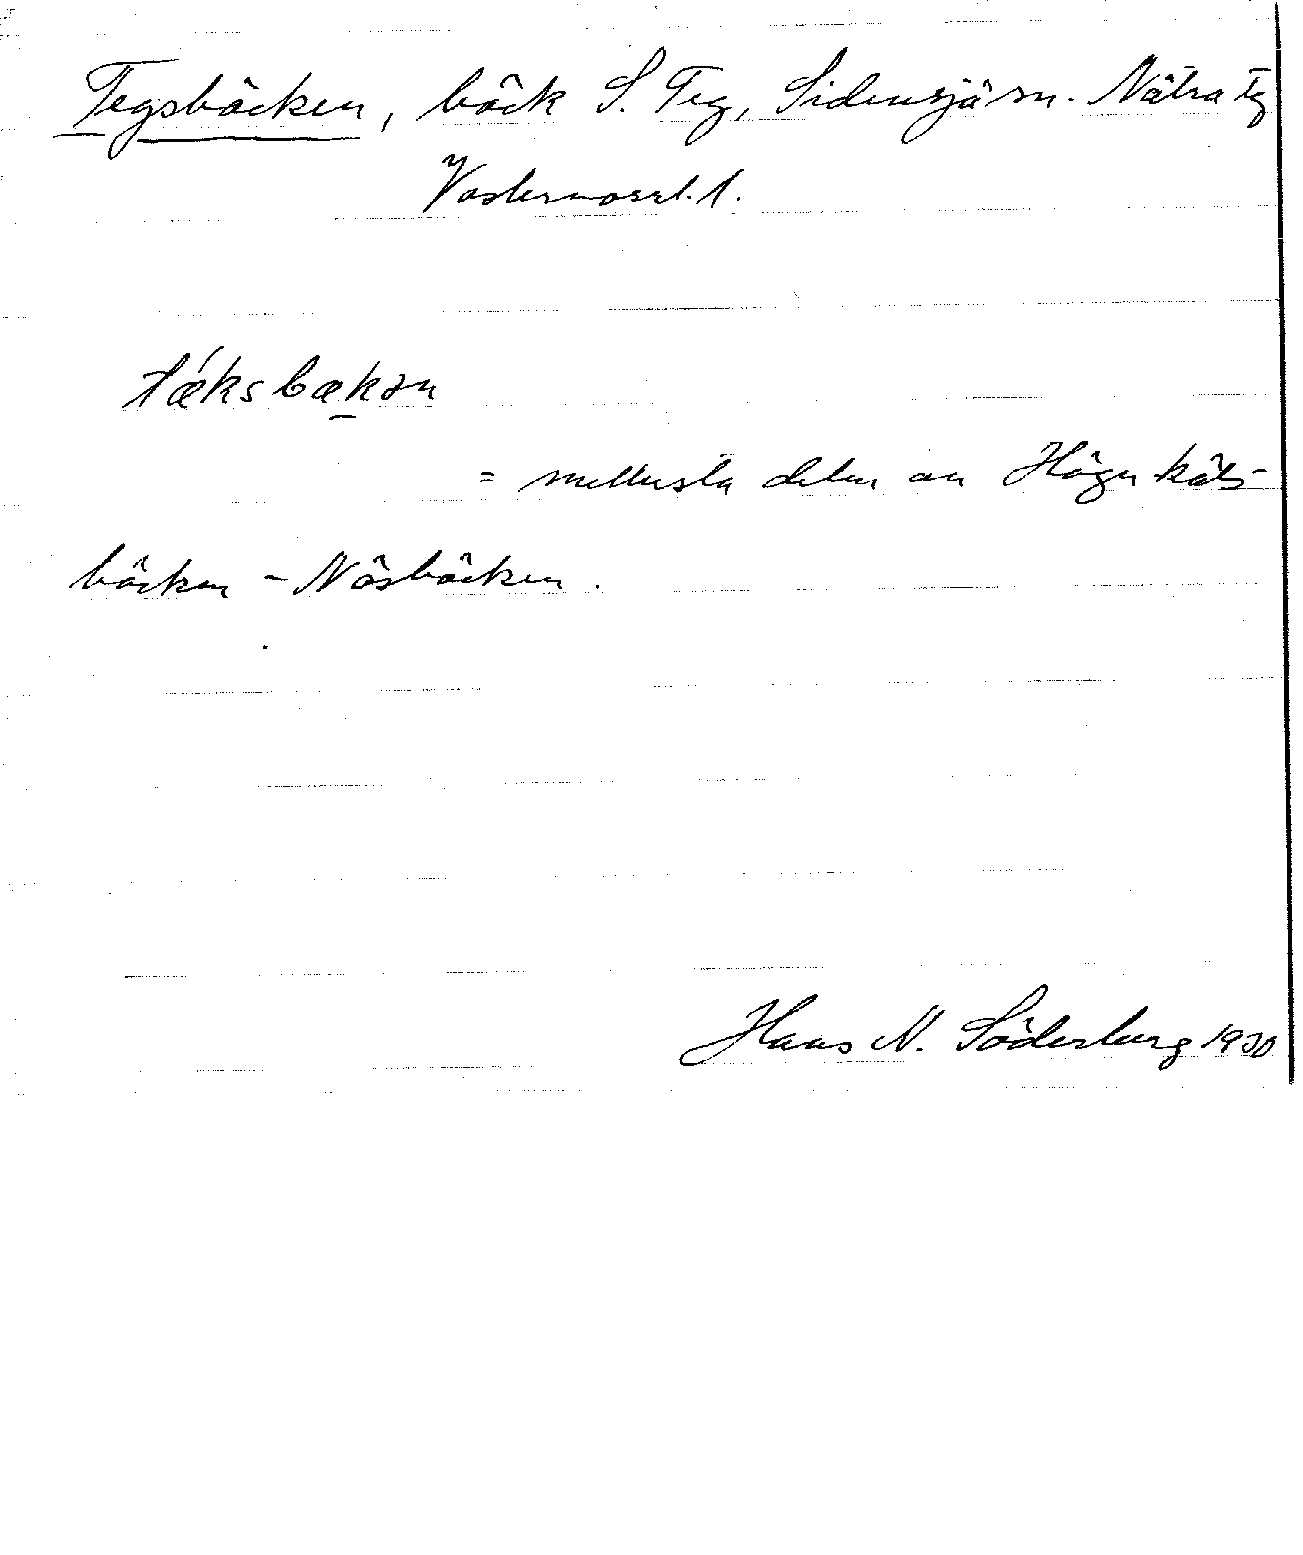 Tegsbäcken, bäck S. Teg, Sidensjö sn. Nätra tg
Västernorrl. l.
tǽksbækən
= mellersta delen av Högukäls-
bäcken - Näsbäcken.
Hans N. Söderberg 1930